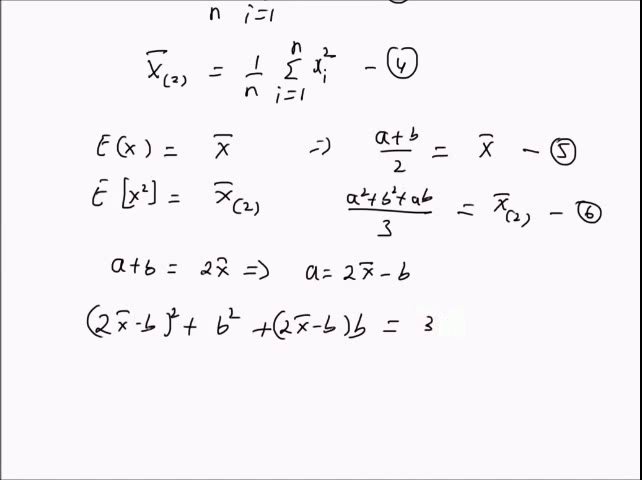 n i=1
x̄(2) = 1/n Σ_{i=1}^{n} x_i² - ④
E(x) = x̄ => (a+b)/2 = x̄ - ⑤
E[x²] = x̄(2) (a²+b²+ab)/3 = x̄(2) - ⑥
a+b = 2x̄ => a = 2x̄ - b
(2x̄-b)² + b² + (2x̄-b)b = 3